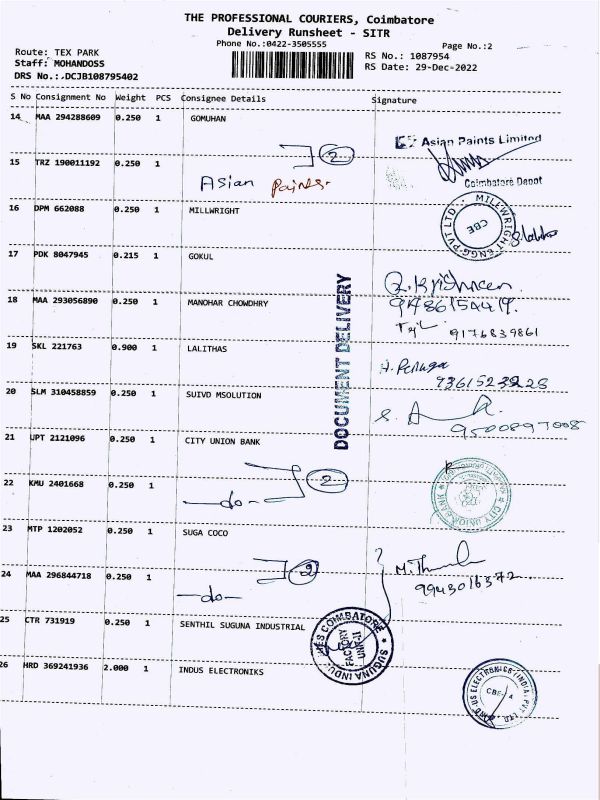 THE PROFESSIONAL COURIERS, Coimbatore
Delivery Runsheet - SITR
Phone No.:0422-3505555
Page No.:2
Route: TEX PARK
RS No.: 1087954
Staff: MOHANDOSS
RS Date: 29-Dec-2022
DRS No.:.DCJB108795402
S No Consignment No Weight PCS Consignee Details Signature
14 MAA 294288609 0.250 1 GOMUHAN
2
Asian Paints Limited
Coimbatore Depot
15 TRZ 190011192 0.250 1
Asian Paints.
16 DPM 662088 0.250 1 MILLWRIGHT
MILLWRIGHT ENGG PVT LTD CBE
17 PDK 8047945 0.215 1 GOKUL
18 MAA 293056890 0.250 1 MANOHAR CHOWDHRY
9176839861
19 SKL 221763 0.900 1 LALITHAS
DOCUMENT DELIVERY
20 SLM 310458859 0.250 1 SUIVD MSOLUTION
9500897008
21 UPT 2121096 0.250 1 CITY UNION BANK
CITY UNION BANK
22 KMU 2401668 0.250 1
2
-do-
23 MTP 1202052 0.250 1 SUGA COCO
2
9943016372
24 MAA 296844718 0.250 1
-do-
25 CTR 731919 0.250 1 SENTHIL SUGUNA INDUSTRIAL
COIMBATORE
SUGUNA INDU
FACTORY
UNIT
26 HRD 369241936 2.000 1 INDUS ELECTRONIKS
CBE-4